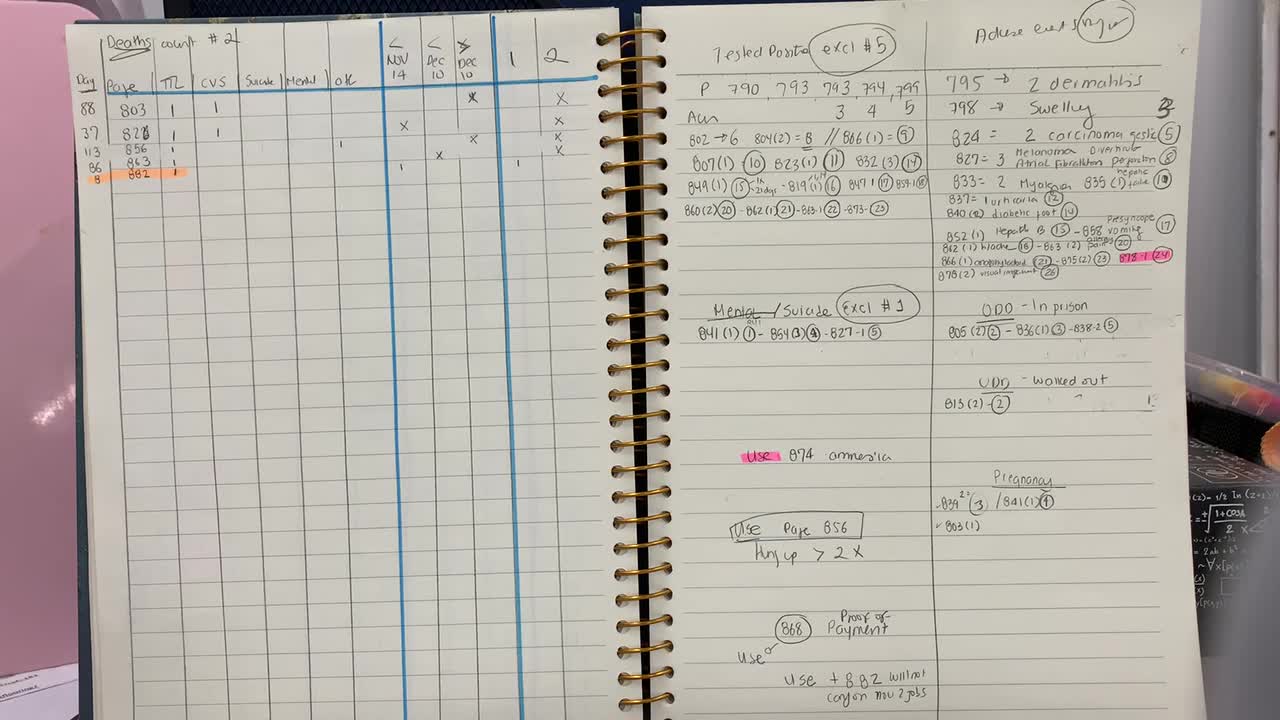 Deaths count # 2
Day Page TTL CVS Suicide Mental
< NOV 14
< Dec 10
> Dec 10
1 2
88 803 1 1 x x
37 826 1 1 x x
113 856 1 1 x x
86 863 1 x x
8 882 1 1 1
Tested Positive excl # 5
P 790, 793, 793, 794, 799
3 4 5
802 → 6 804(2) = 8 // 866(1) = 9
807(1) 10 823(1) 11 832 (3) 14
849(1) 15 - 819(1) 16 847-1 17 859-1 18
860(2) 20 - 862(1) 21 - 863-1 22 - 873- 23
Mental / Suicide Excl # 1
841(1) 1 - 854(3) 4 - 827-1 5
Use 874 amnesia
Use Page 856
Hung up > 2 x
868 Proof of Payment
Use
Use + 882 will not
carry on
795 → 2 dermatitis
798 → Swelling
824 = 2 carcinoma 5
827 = 3 Melanoma
Atrial Fibrillation 8
833 = 2 835 (1) hepatic 10
837 = 1 urticaria 12
840 (2) diabetic foot 14
852 (1) Hepatitis B 15 - 858 Presyncope vomiting 17
862 (1) 18 - 863 (2) 20
866 (1) - 875(2) 23 878-1 24
878(2) visual 26
ODD - In prison
805(2) 2 - 836(1) 3 - 838-2 5
- walked out
813(2) - 2
Pregnancy
-839 2= 3 / 841(1) 4
803(1)